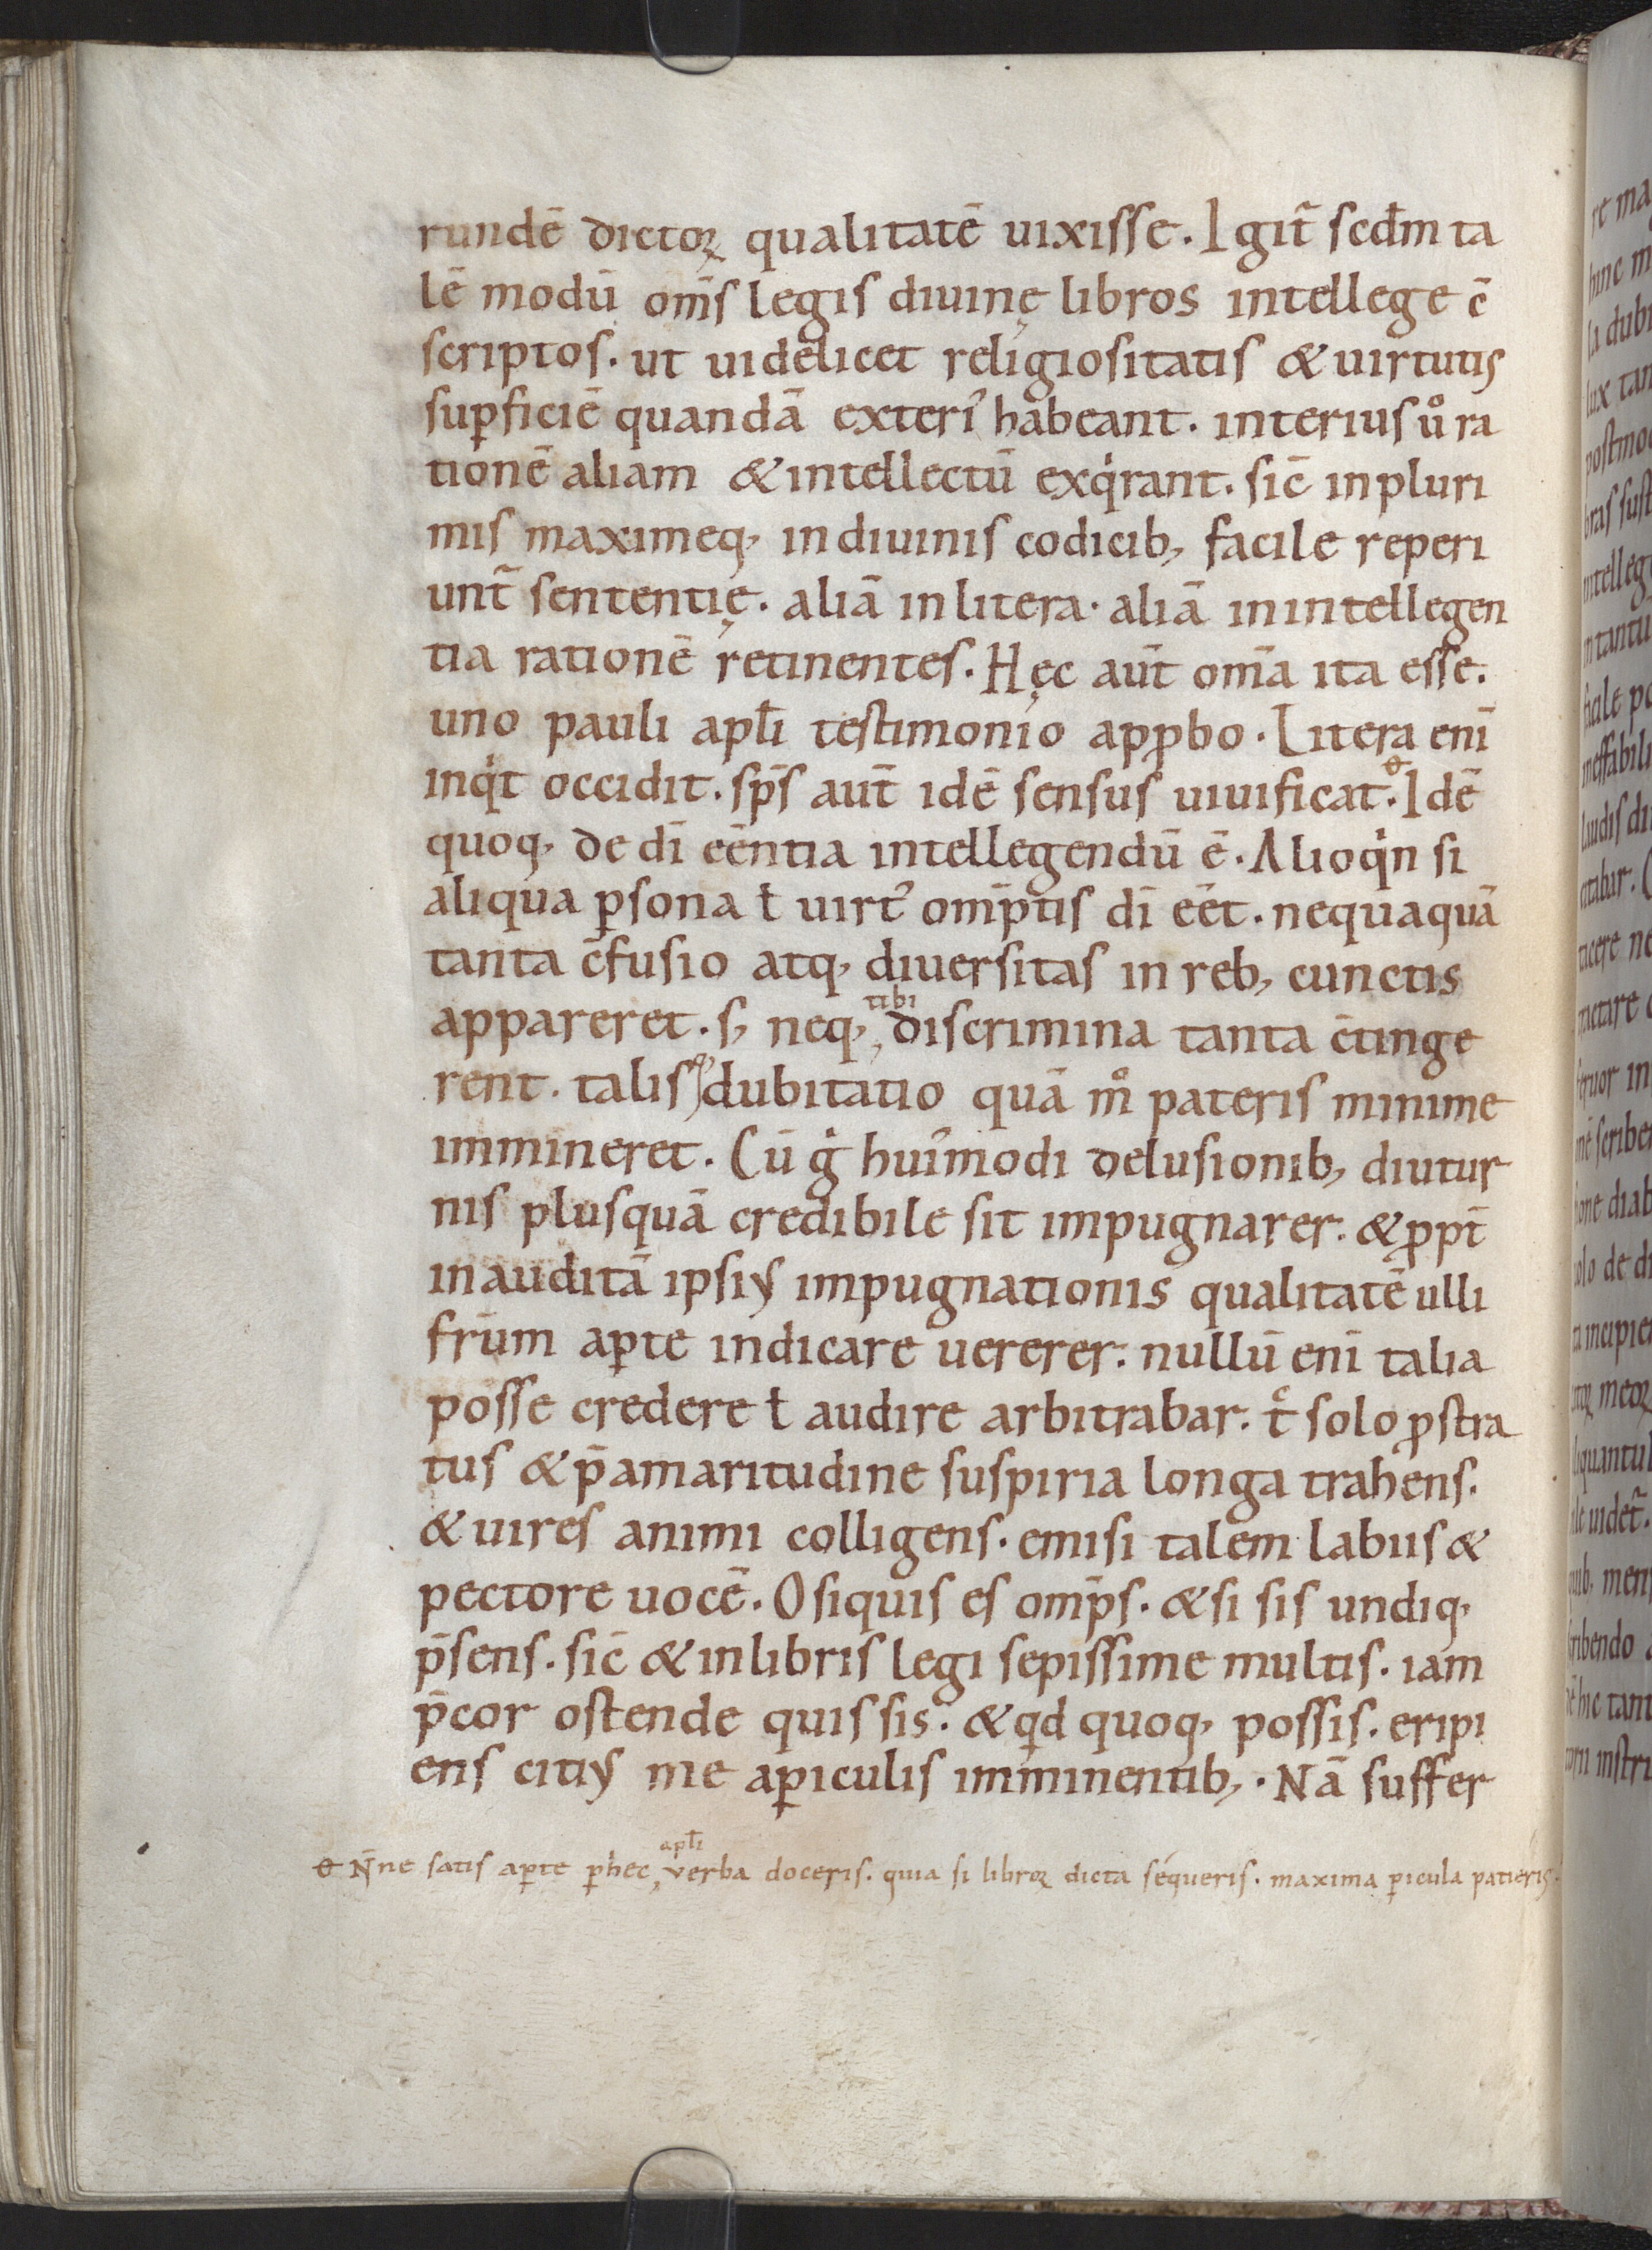 rundē dictoꝝ qualitatē uixisse. Igit̄ scd̄m ta
lē modū om̄s legis diuinę libros intellege ē
scriptos. ut uidelicet religiositatis & uirtutis
suꝑficiē quandā exteri᷒ habeant. interius ůra
tionē aliam & intellectū exqͥrant. sic̄ in pluri
mis maximeq; in diuinis codicib; facile reperi
unt̄ sententię. aliā in litera. aliā in intellegen
tia rationē retinentes. Hęc aut̄ om̄a ita esse.
uno pauli apl̄i testimonio apꝓbo. Litera enī
inqͥt occidit. sp̄s aut̄ idē sensus uiuificat. Idē
quoq; de dī eēntia intellegendū ē. Alioqͥn si
aliqua ꝑsona ł uirt᷒ om̄ptis dī eēt. nequaquā
tanta c̄fusio atq; diuersitas in reb; cunctis
appareret. s; neq; tibi discrimina tanta c̄tinge
rent. talisq; dubitatio quā m̊ pateris minime
immineret. Cū gͥ hui᷒modi delusionib; diutur
nis plusquā credibile sit impugnarer. & ꝓpt̄
inauditā ipsiꝰ impugnationis qualitatē ulli
fr̄um aꝑte indicare uererer. nullū enī talia
posse credere ł audire arbitrabar. tͨ solo ꝓstra
tus & p̄ amaritudine suspiria longa trahens.
& uires animi colligens. emisi talem labiis &
pectore uocē. O siquis es om̄ps. & si sis undiq;
p̄sens. sic̄ & in libris legi sepissime multis. iam
p̄cor ostende quis sis. & qd quoq; possis. eripi
ens citiꝰ me a ꝑiculis imminentib;. Nā suffer
ꝋ N̄ne satis aꝑte ꝑ hec apl̄i verba doceris. quia si libroꝝ dicta sequeris. maxima ꝑicula patieris.